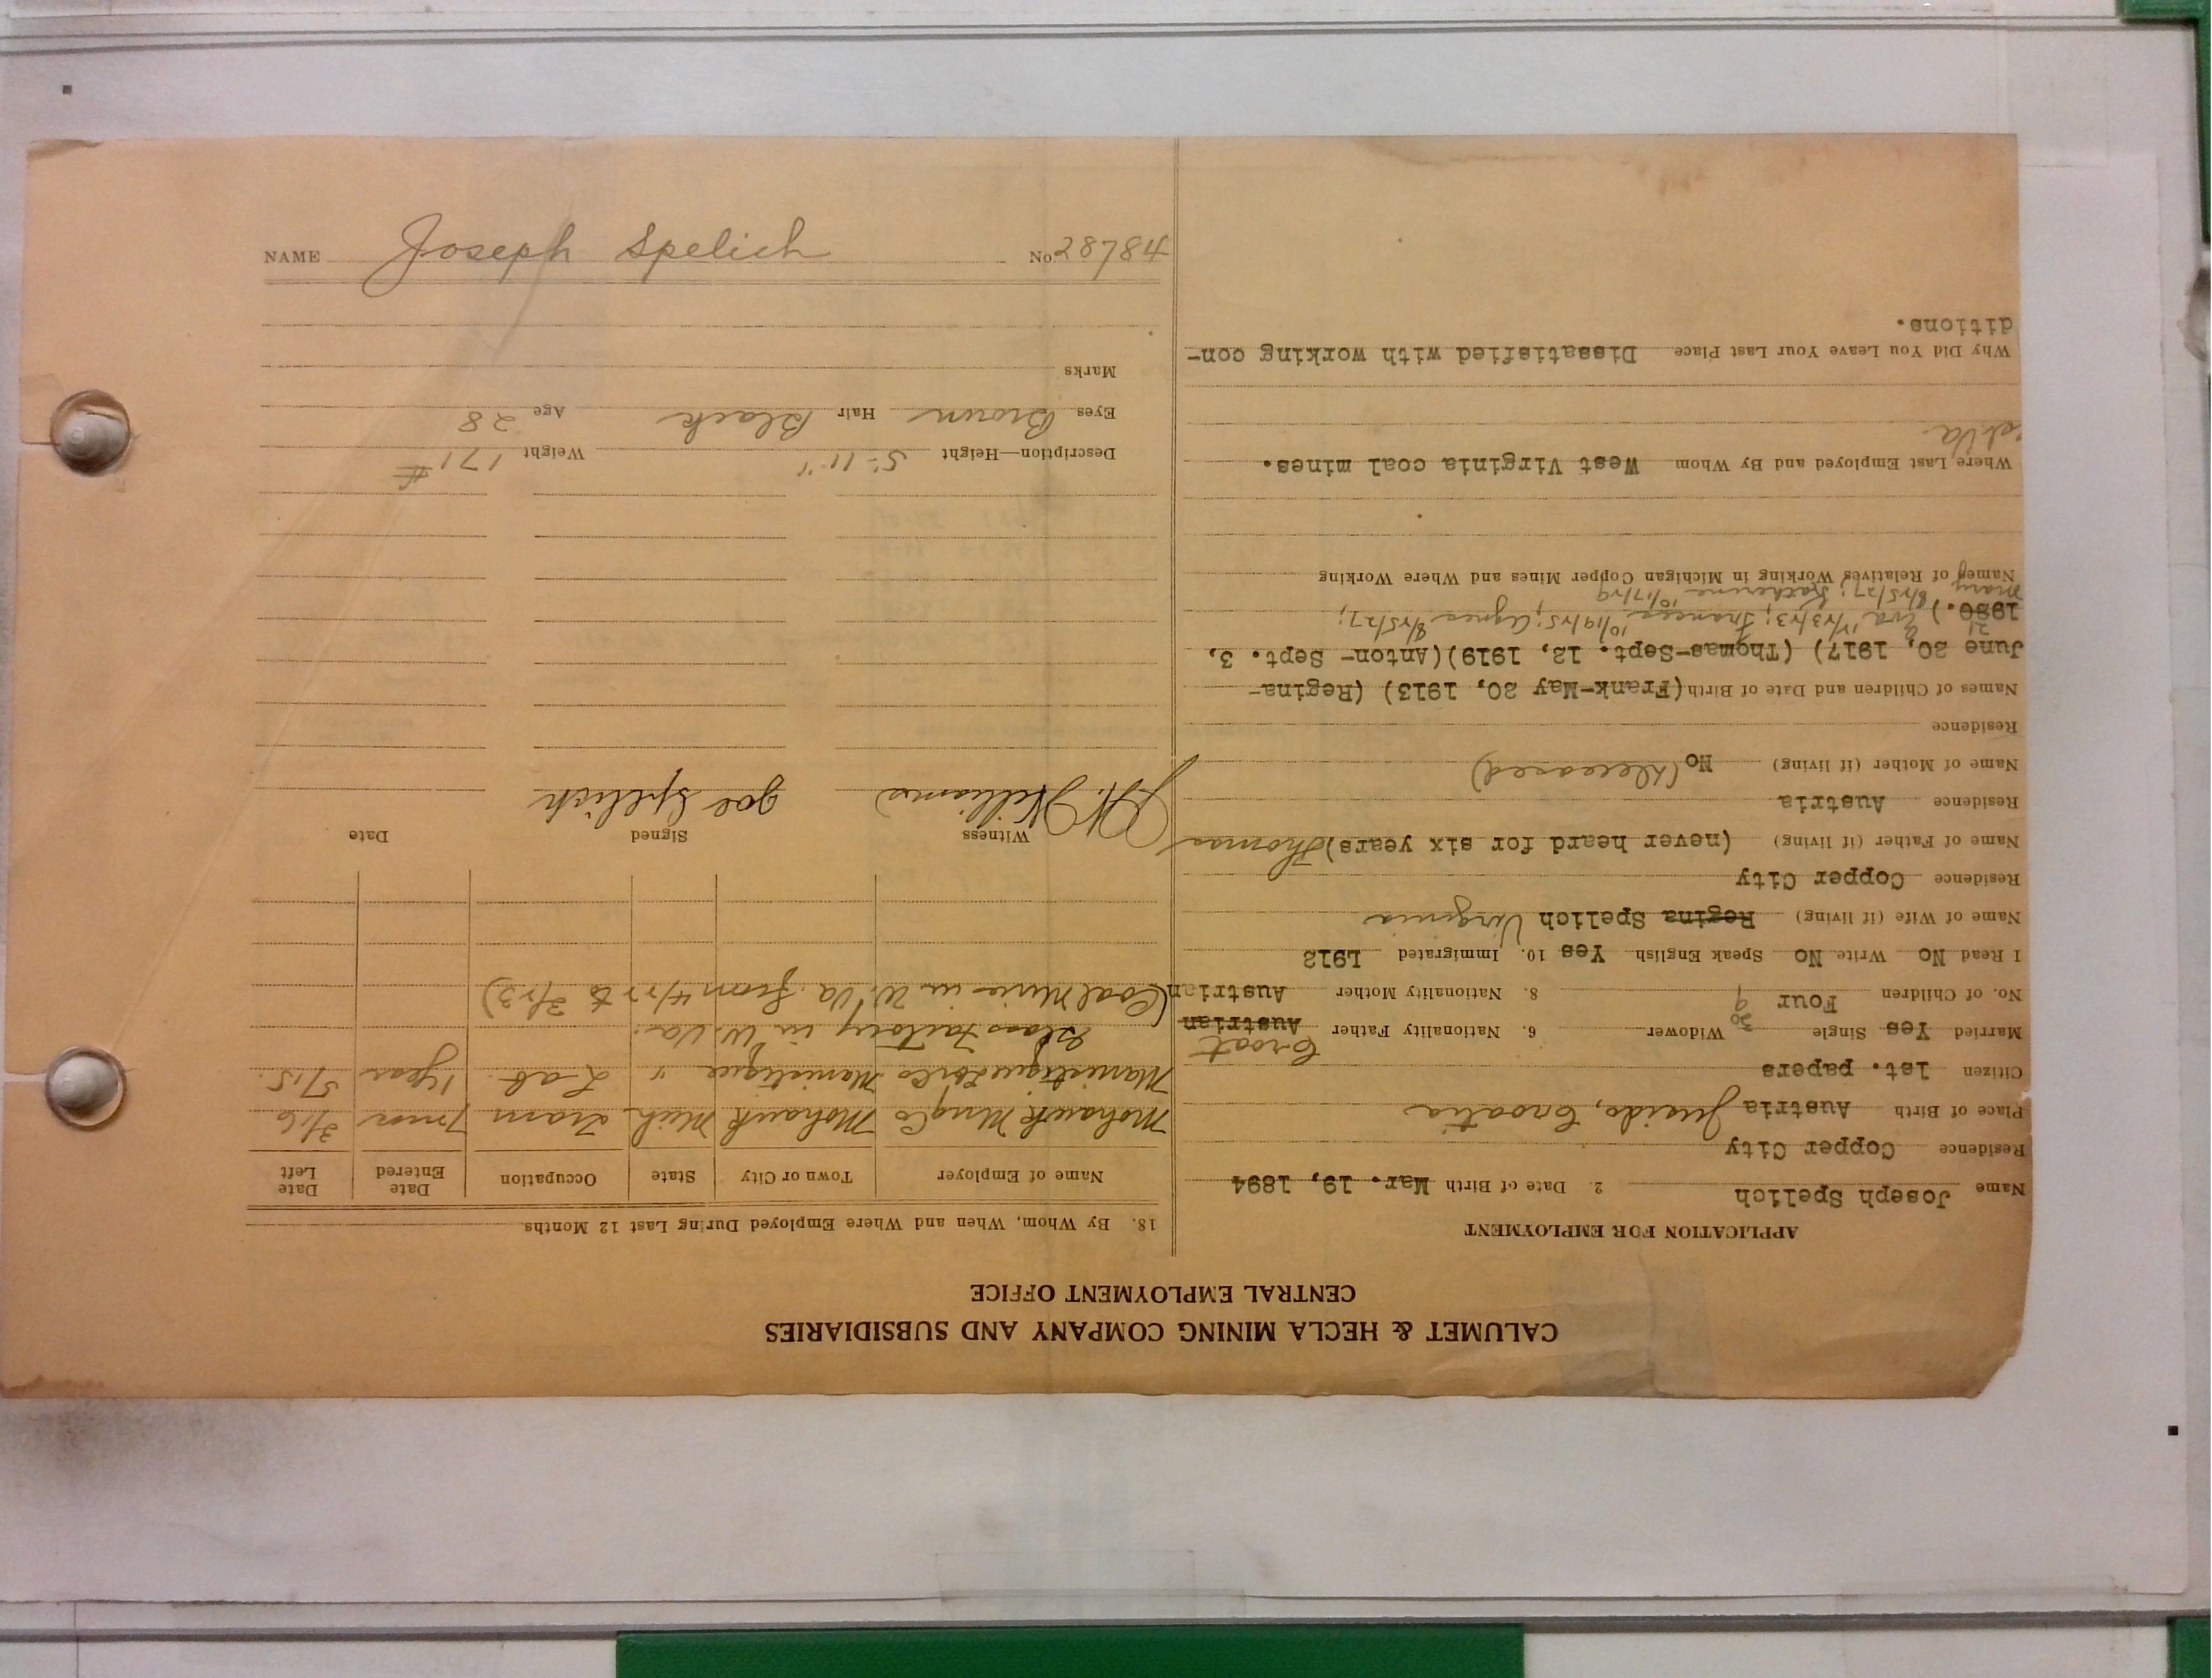 CALUMET & HECLA MINING COMPANY AND SUBSIDIARIES
CENTRAL EMPLOYMENT OFFICE
APPLICATION FOR EMPLOYMENT
Name Joseph Spelich 2. Date of Birth Mar. 19, 1894
Residence Copper City
Place of Birth Austria Croatia
Citizen 1st. papers
Croat
Married Yes Single Widower 6. Nationality Father Austrian
No. of Children Four 9 8. Nationality Mother Austrian
I Read No Write No Speak English Yes 10. Immigrated 1912
Name of Wife (if living) Regina Spelich Virginia
Residence Copper City
Name of Father (if living) (never heard for six years) Thomas
Residence Austria
Name of Mother (if living) No (Deceased)
Residence
Names of Children and Date of Birth (Frank-May 20, 1913) (Regina-
June 30, 1917) (Thomas-Sept. 12, 1919)(Anton- Sept. 3,
21
1920.) Eva 11/23/23; Frances 10/19/25; Agnes 8/25/27;
Mary 8/25/27; Katherine 10/17/29
Names of Relatives Working in Michigan Copper Mines and Where Working
Where Last Employed and By Whom West Virginia coal mines.
Why Did You Leave Your Last Place Dissatisfied with working con-
ditions.
18. By Whom, When and Where Employed During Last 12 Months
Name of Employer Town or City State Occupation Date Entered Date Left
Mohawk Mng Co Mohawk Mich Tram 7 mos 3/16
Manistique Manistique " Lab. 1 year 5/15.
Glass Factory in W. Va.
(Coal Mine in W. Va. from 4/22 to 3/23)
Witness Signed Date
J.H. Williams Joe Spelich
Description—Height 5'-11" Weight 171#
Eyes Brown Hair Black Age 28
Marks
NAME Joseph Spelich No. 28784